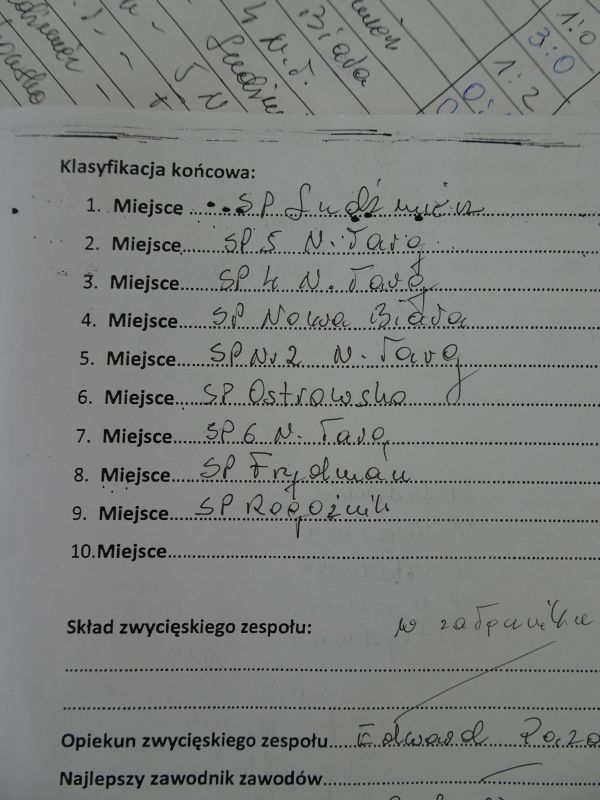 4 N.T.
Biała
1:0
3:0
1:2
5 N
Klasyfikacja końcowa:
1. Miejsce SP Ludźmierz
2. Miejsce SP 5 N. Targ
3. Miejsce SP 4 N. Targ
4. Miejsce SP Nowa Biała
5. Miejsce SP Nr 2 N. Targ
6. Miejsce SP Ostrowsko
7. Miejsce SP 6 N. Targ
8. Miejsce SP Frydman
9. Miejsce SP Rogoźnik
10. Miejsce
Skład zwycięskiego zespołu: w załączniku
Opiekun zwycięskiego zespołu Edward
Najlepszy zawodnik zawodów